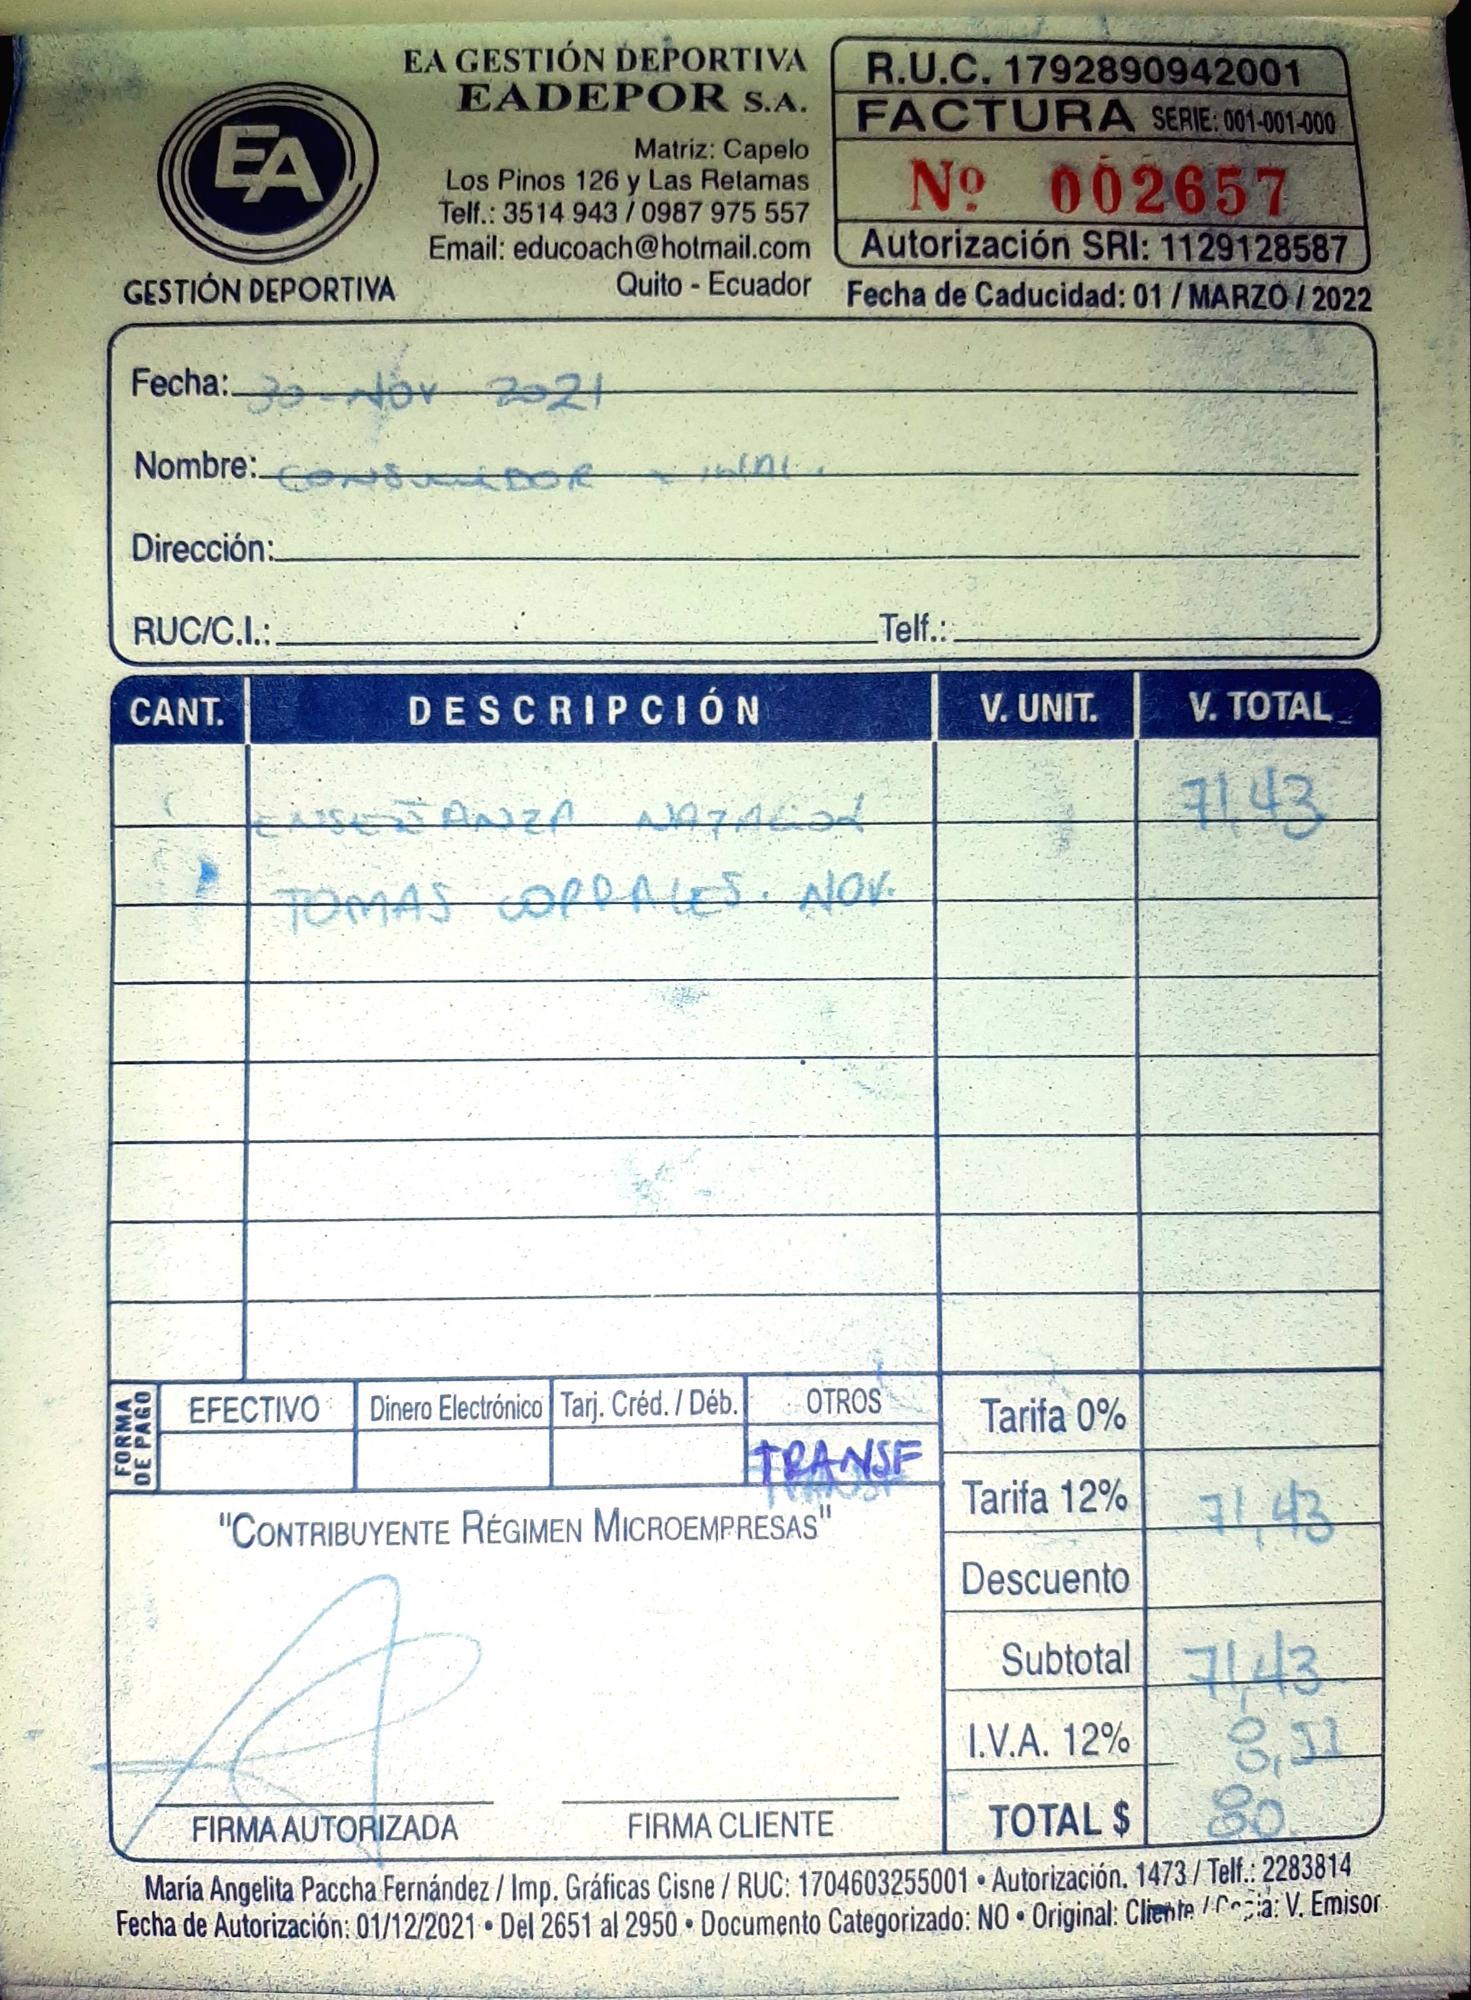 EA GESTIÓN DEPORTIVA
EADEPOR S.A.
Matriz: Capelo
Los Pinos 126 y Las Retamas
Telf.: 3514 943 / 0987 975 557
Email: educoach@hotmail.com
Quito - Ecuador
EA
GESTIÓN DEPORTIVA
R.U.C. 1792890942001
FACTURA SERIE: 001-001-000
Nº 002657
Autorización SRI: 1129128587
Fecha de Caducidad: 01 / MARZO / 2022
Fecha: 30-NOV 2021
Nombre: CONSUMIDOR
Dirección:
RUC/C.I.: Telf.:
CANT. DESCRIPCIÓN V. UNIT. V. TOTAL
ENSEÑANZA NATACION 71,43
TOMAS CORRALES. NOV.
FORMA DE PAGO
EFECTIVO Dinero Electrónico Tarj. Créd. / Déb. OTROS
TRANSF
Tarifa 0%
Tarifa 12% 71,43
Descuento
Subtotal 71,43
I.V.A. 12%
TOTAL $ 80
"CONTRIBUYENTE RÉGIMEN MICROEMPRESAS"
FIRMA AUTORIZADA FIRMA CLIENTE
María Angelita Paccha Fernández / Imp. Gráficas Cisne / RUC: 1704603255001 • Autorización. 1473 / Telf.: 2283814
Fecha de Autorización: 01/12/2021 • Del 2651 al 2950 • Documento Categorizado: NO • Original: Cliente / Copia: V. Emisor